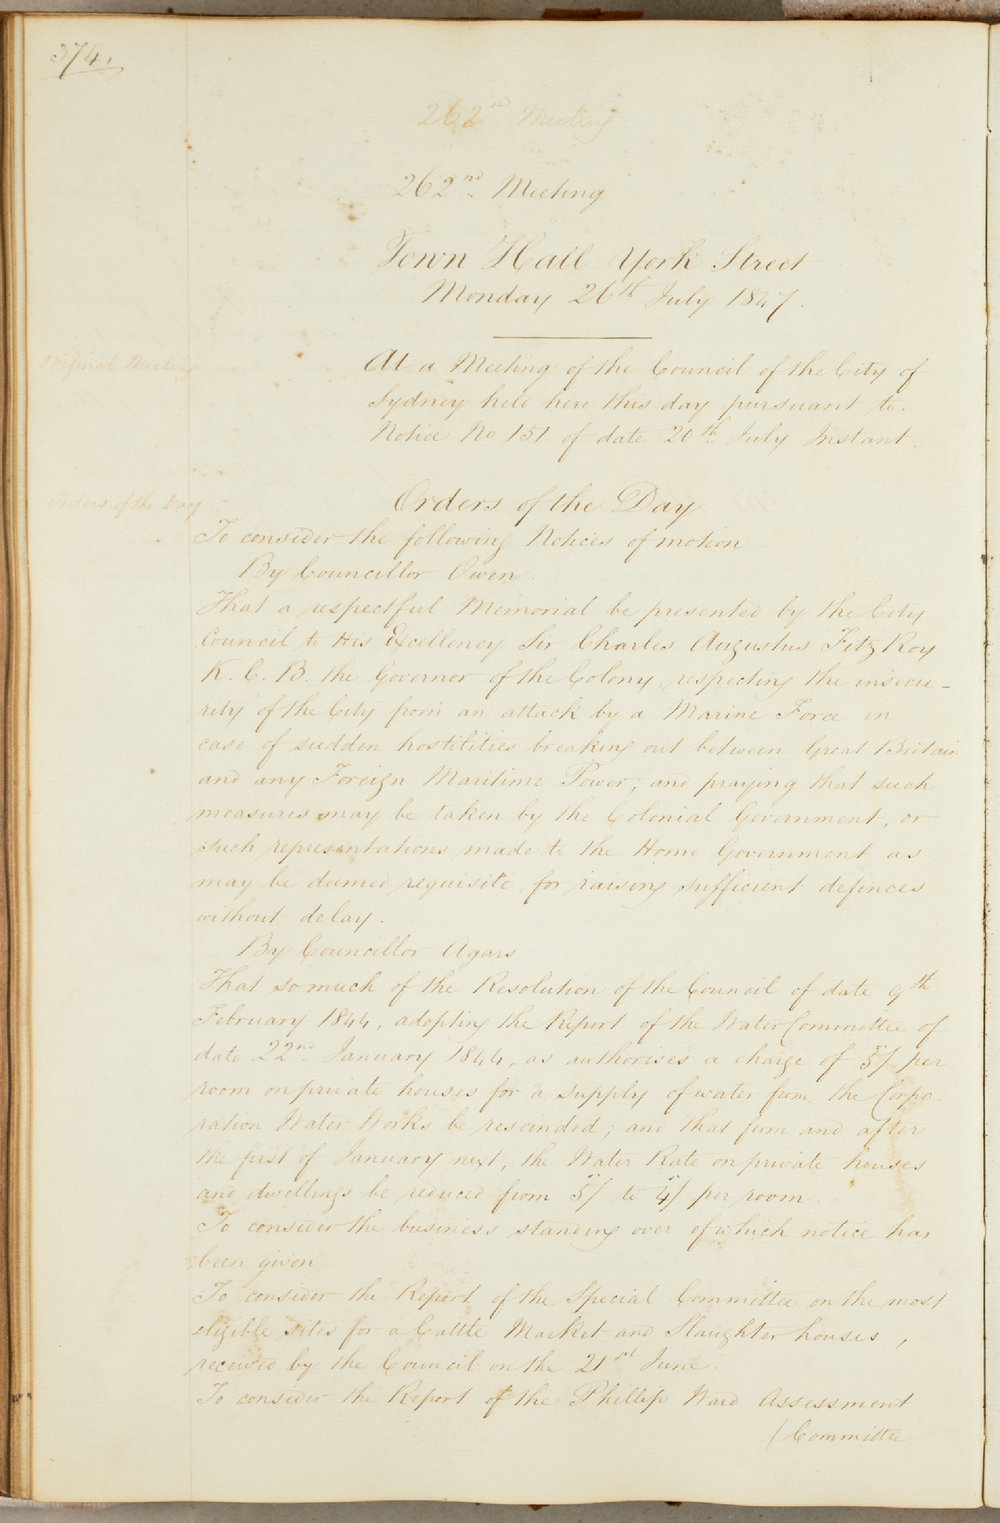 374.
262nd Meeting
262nd Meeting
Town Hall York Street
Monday 26th July 1847.
Original Meeting
At a Meeting of the Council of the City of
Sydney held here this day pursuant to.
Notice No 151 of date 20th July Instant.
Orders of the Day
Orders of the Day
To consider the following Notices of motion
By Councillor Owen.
That a respectful Memorial be presented by the City
Council to His Excellency Sir Charles Augustus FitzRoy
K. C. B. the Governor of the Colony, respecting the insecu-
rity of the City from an attack by a Marine Force in
case of sudden hostilities breaking out between Great Britain
and any Foreign Maritime Power; and praying that such
measures may be taken by the Colonial Government, or
such representations made to the Home Government as
may be deemed requisite, for raising sufficient defences
without delay.
By Councillor Agars
That so much of the Resolution of the Council of date 9th
February 1844, adopting the Report of the Water Committee of
date 22nd January 1844, as authorises a charge of 5/ per
room on private houses for a supply of water from the Corpo-
ration Water Works be rescinded; and that from and after
the first of January next, the Water Rate on private houses
and dwellings be reduced from 5/ to 4/ per room.
To consider the business standing over of which notice has
been given
To consider the Report of the Special Committee on the most
eligible sites for a Cattle Market and Slaughter houses,
received by the Council on the 21st June.
To consider the Report of the Phillip Ward Assessment
/Committee